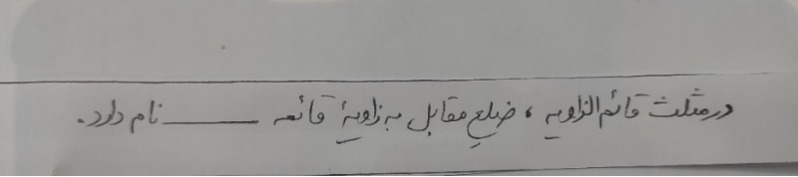 در مثلث قائم الزاویه ، ضلع مقابل به زاویهٔ قائمه ــــــــــ نام دارد.